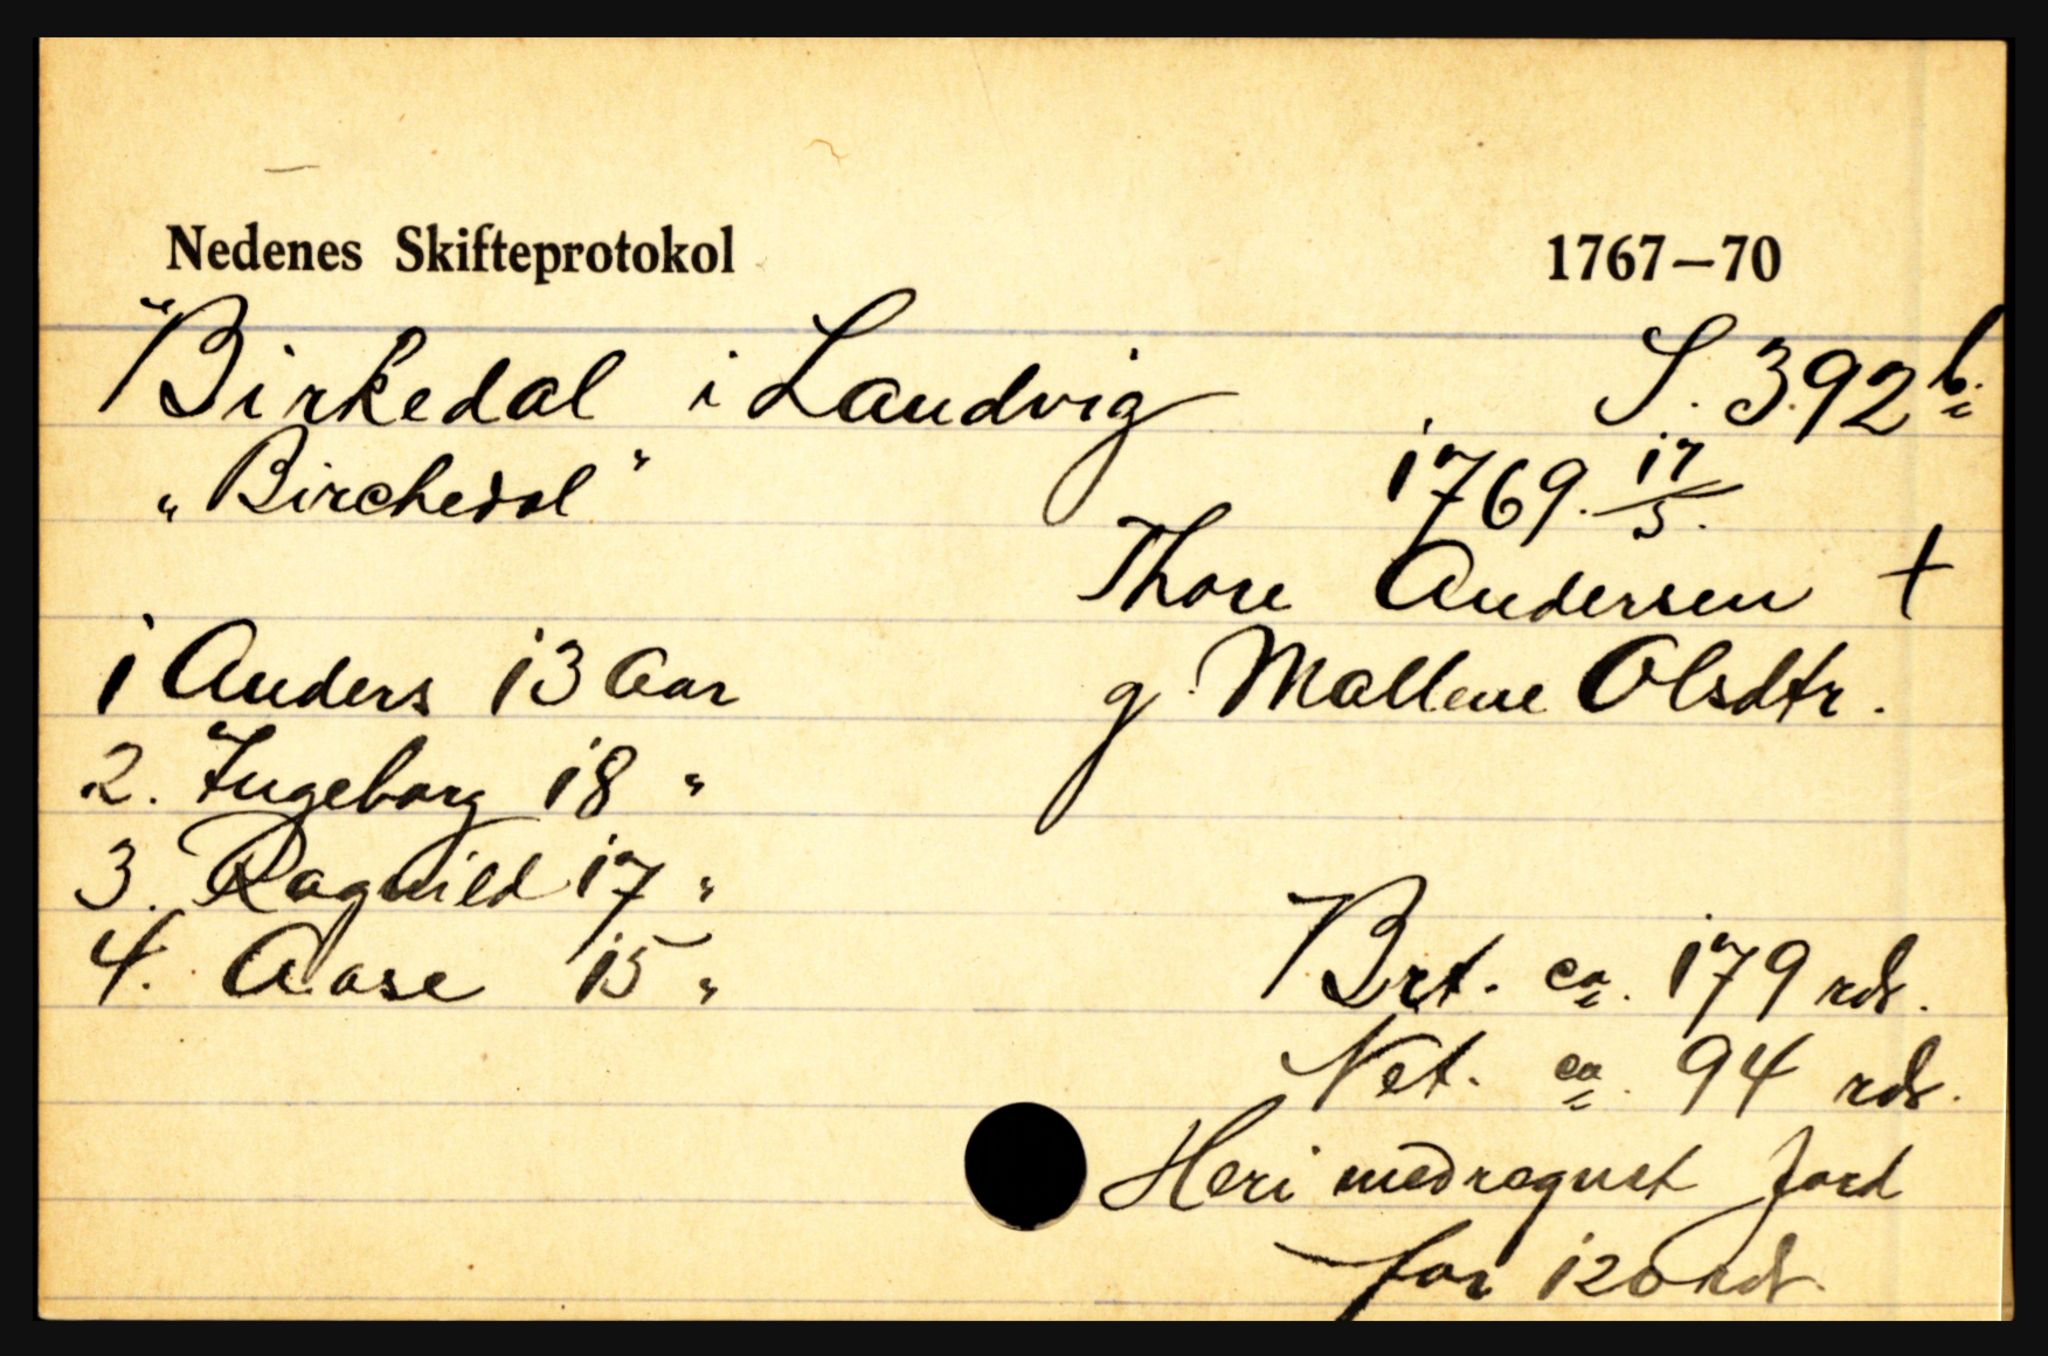 Nedenes Skifteprotokol 1767–70
"Birkedal i Landvig S. 392 b.
"Birchedal" 1769. 17/3.
Thore Andersen +
1 Anders 13 Aar g. Mallene Olsdtr.
2. Ingeborg 18 "
3. Ragnild 17 "
4. Aase 15 " Brt. ca. 179 rdr.
Net. ca. 94 rdr.
Heri medregnet Jord
for 120 rdr.